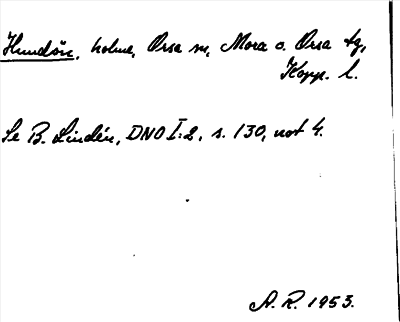 Hundön, holme, Orsa sn, Mora o. Orsa tg,
Kopp. l.
Se B. Lindén, DNO I:2, s. 130, not 4.
A. R. 1953.